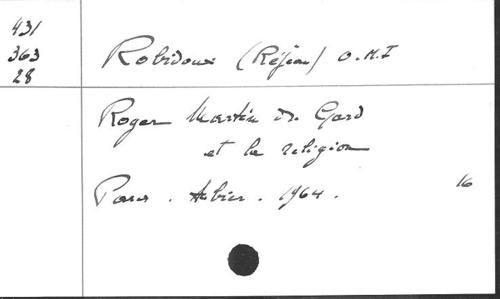 431
363
28
Robidoux (Réjean) O.M.I
Roger Martin du Gard
et la religion
Paris. Aubier. 1964.
16